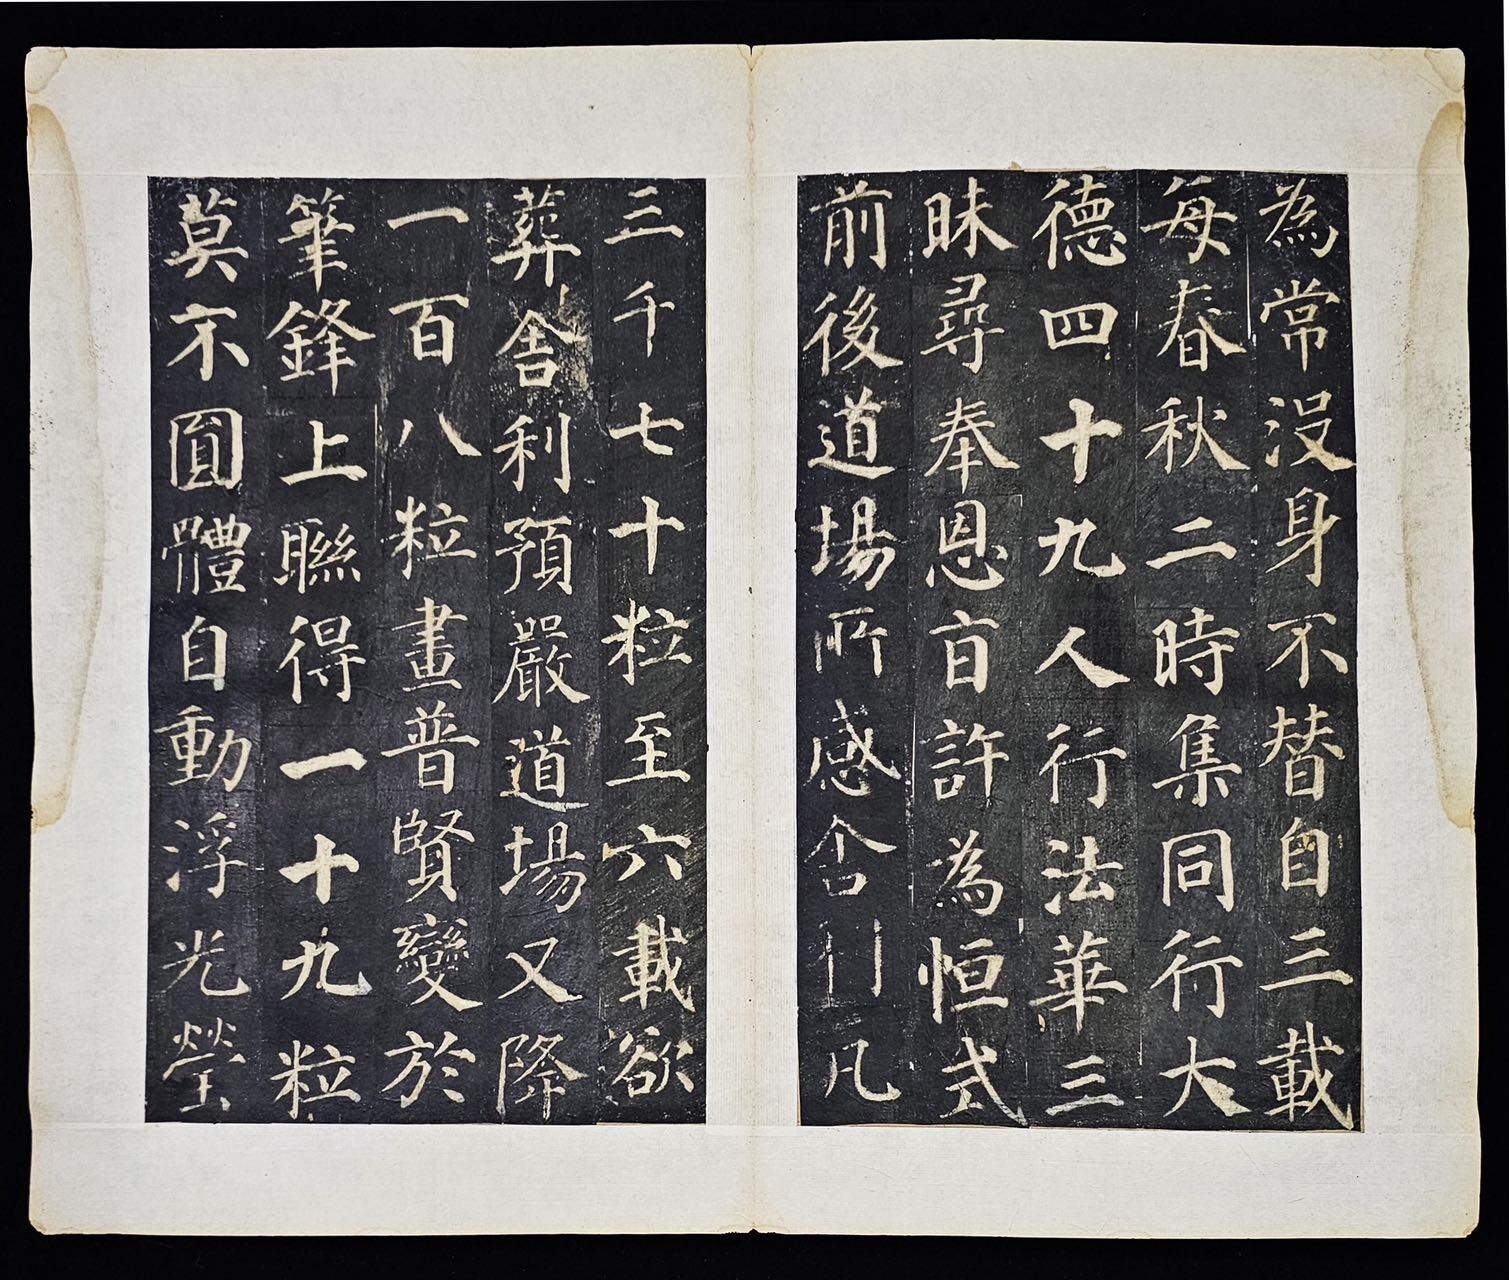 為常没身不替自三載
每春秋二時集同行大
德四十九人行法華三
昧尋奉恩旨許為恒式
前後道場所感舍利凡
三千七十粒至六載欲
葬舍利預嚴道場又降
一百八粒畫普賢變於
筆鋒上聯得一十九粒
莫不圓體自動浮光瑩